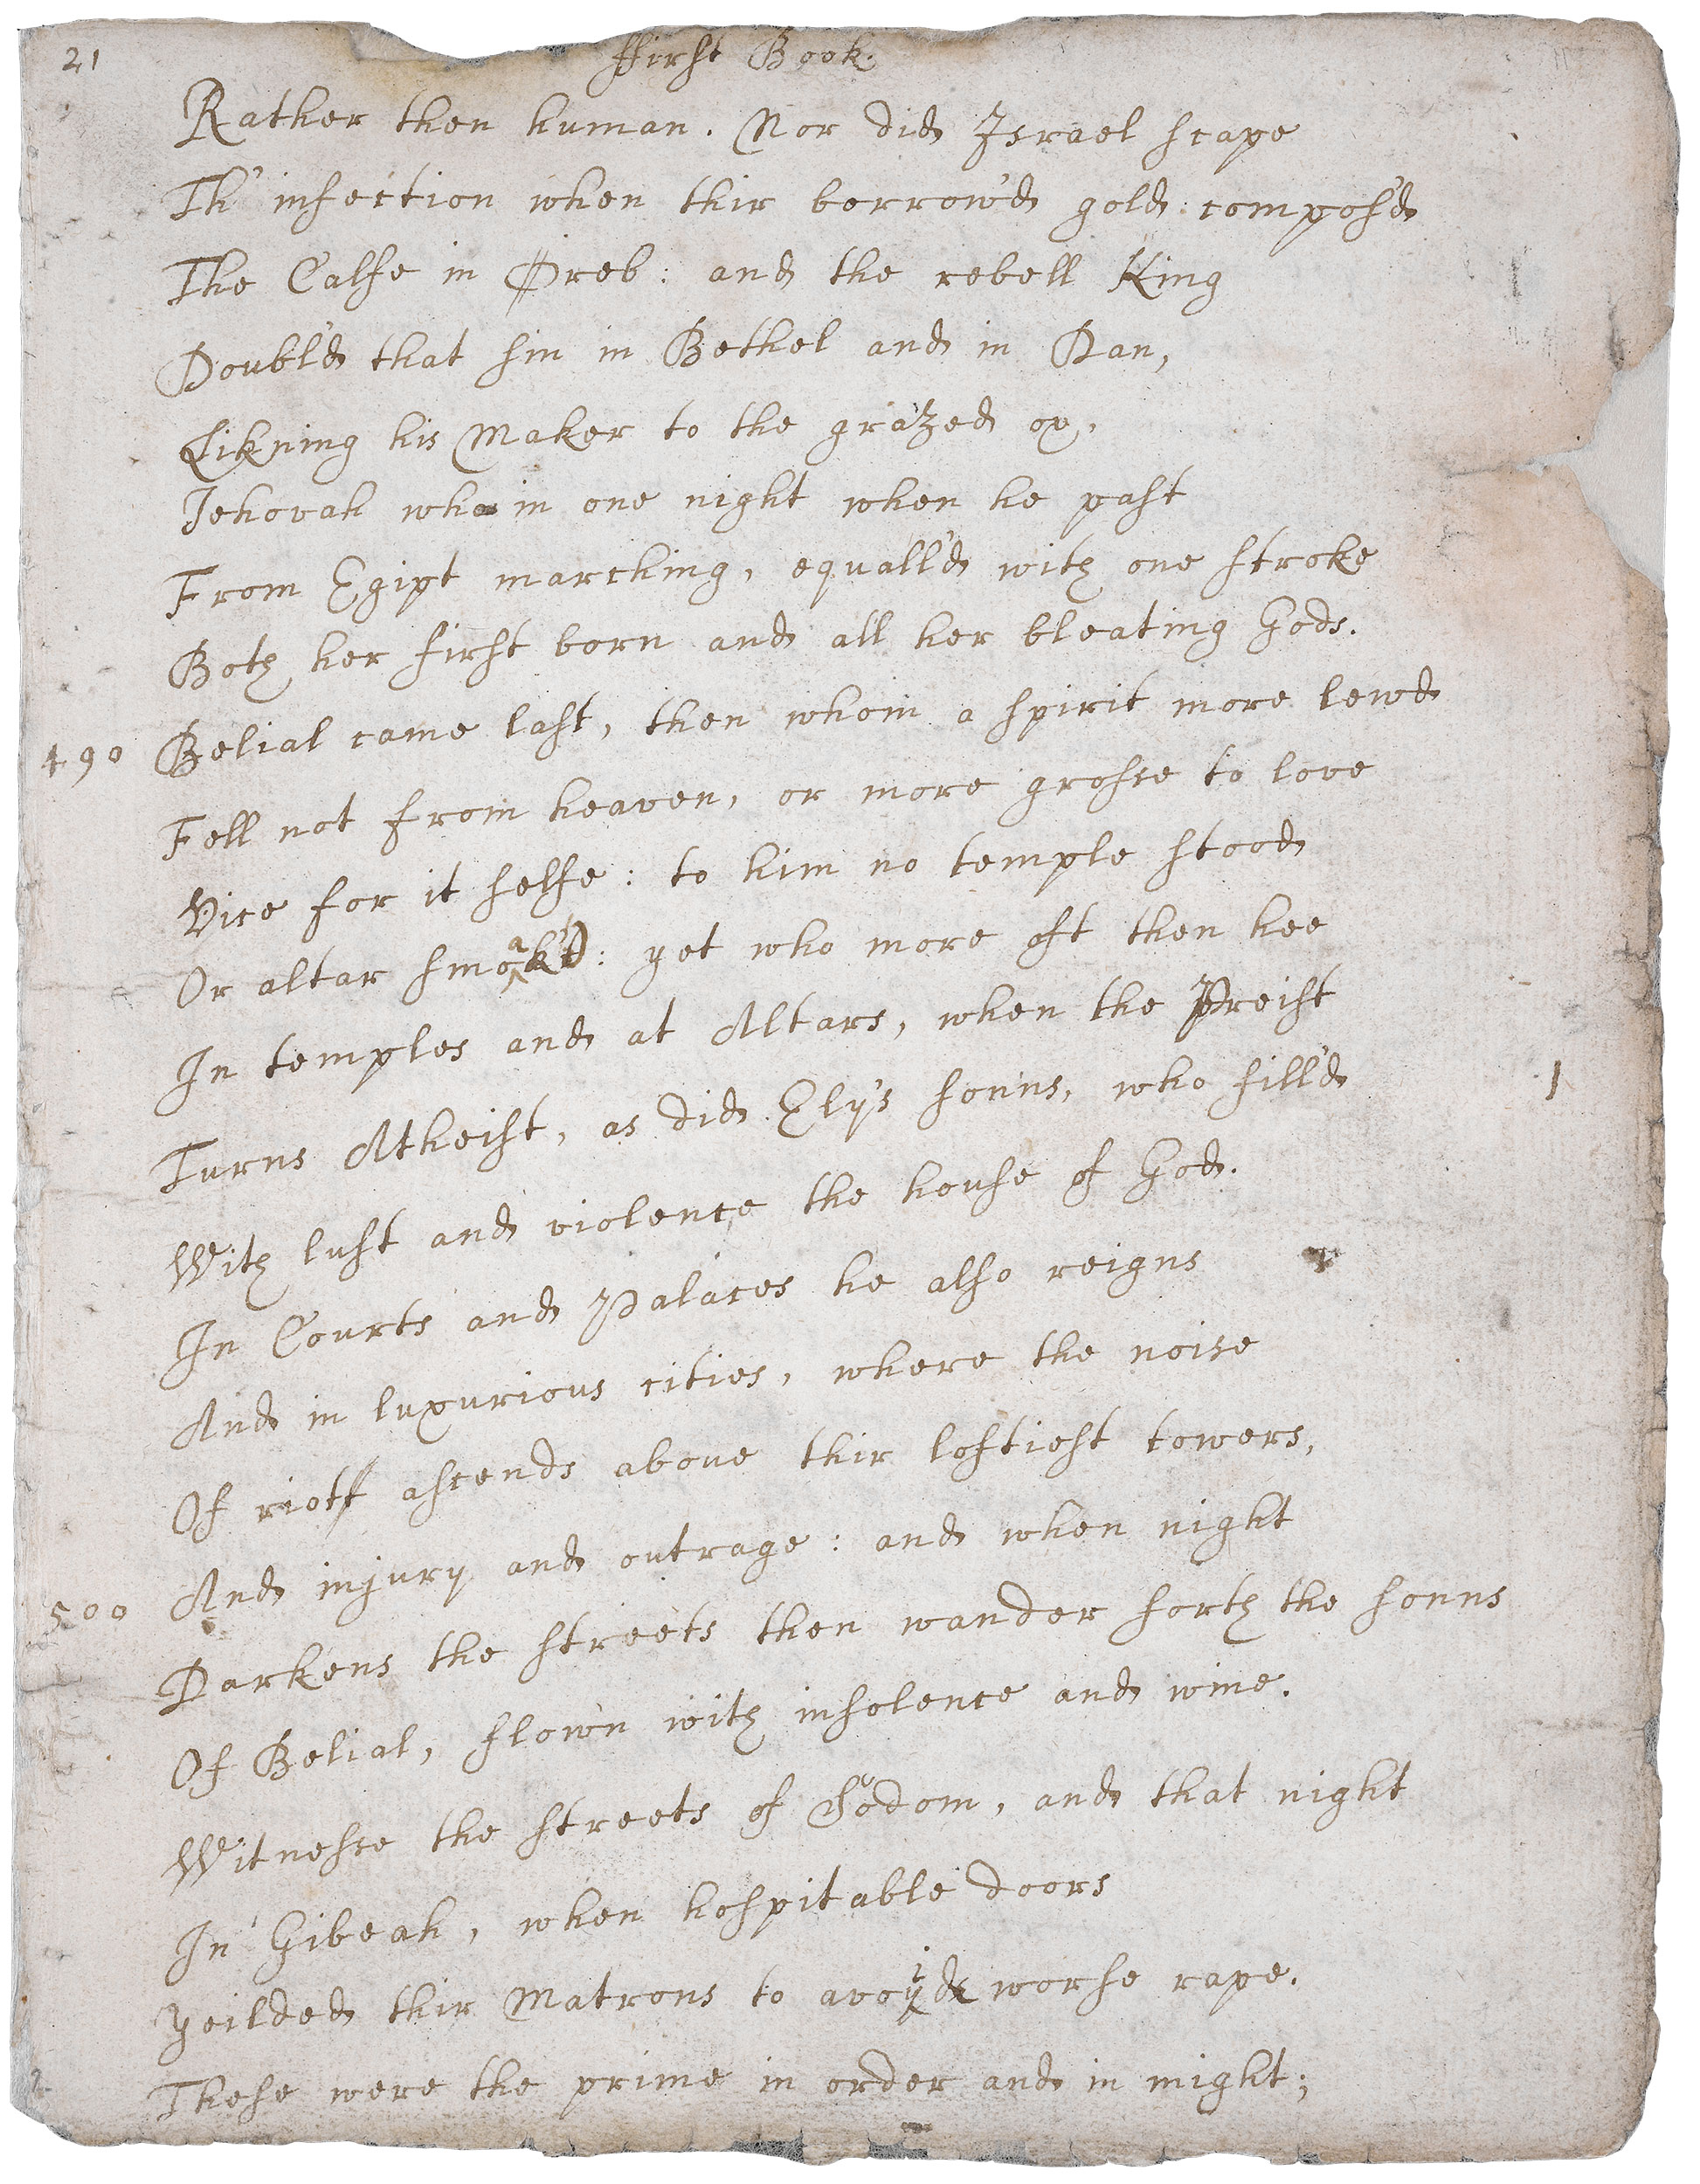 21
ffirst Book.
Rather then human. Nor did Israel scape
Th' infection when thir borrow'd gold compos'd
The Calfe in Oreb: and the rebell King
Doubl'd that sin in Bethel and in Dan,
Lik'ning his Maker to the grazed ox,
Jehovah who in one night when he past
From Egipt marching, equall'd with one stroke
Both her first born and all her bleating Gods.
490 Belial came last, then whom a spirit more lewd
Fell not from heaven, or more grosse to love
Vice for it selfe: to him no temple stood
Or altar smoak'd: yet who more oft then hee
In temples and at Altars, when the Preist
Turns Atheist, as did Ely's sonns, who fill'd
With lust and violence the house of God.
In Courts and Palaces he also reigns
And in luxurious cities, where the noise
Of riott ascends above thir loftiest towers,
500 And injury and outrage: and when night
Darkens the streets then wander forth the sonns
Of Belial, flown with insolence and wine.
Witnesse the streets of Sodom, and that night
In Gibeah, when hospitable doors
Yeilded thir Matrons to avoid worse rape.
These were the prime in order and in might;